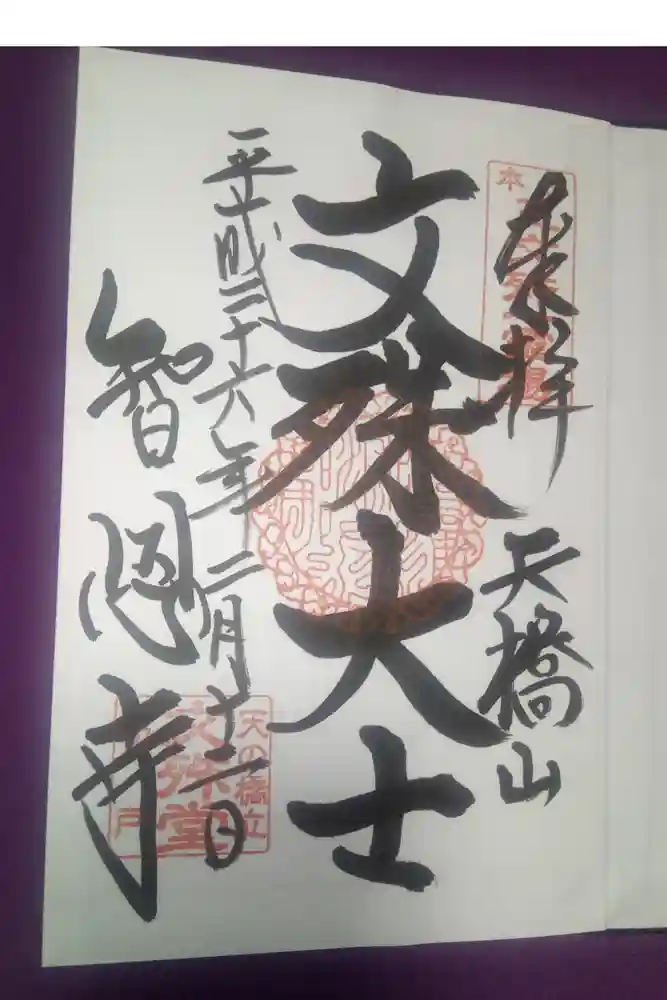 奉拝
天橋山
文殊大士
平成二十六年二月十二日
智恩寺
本
天の橋立
文殊堂